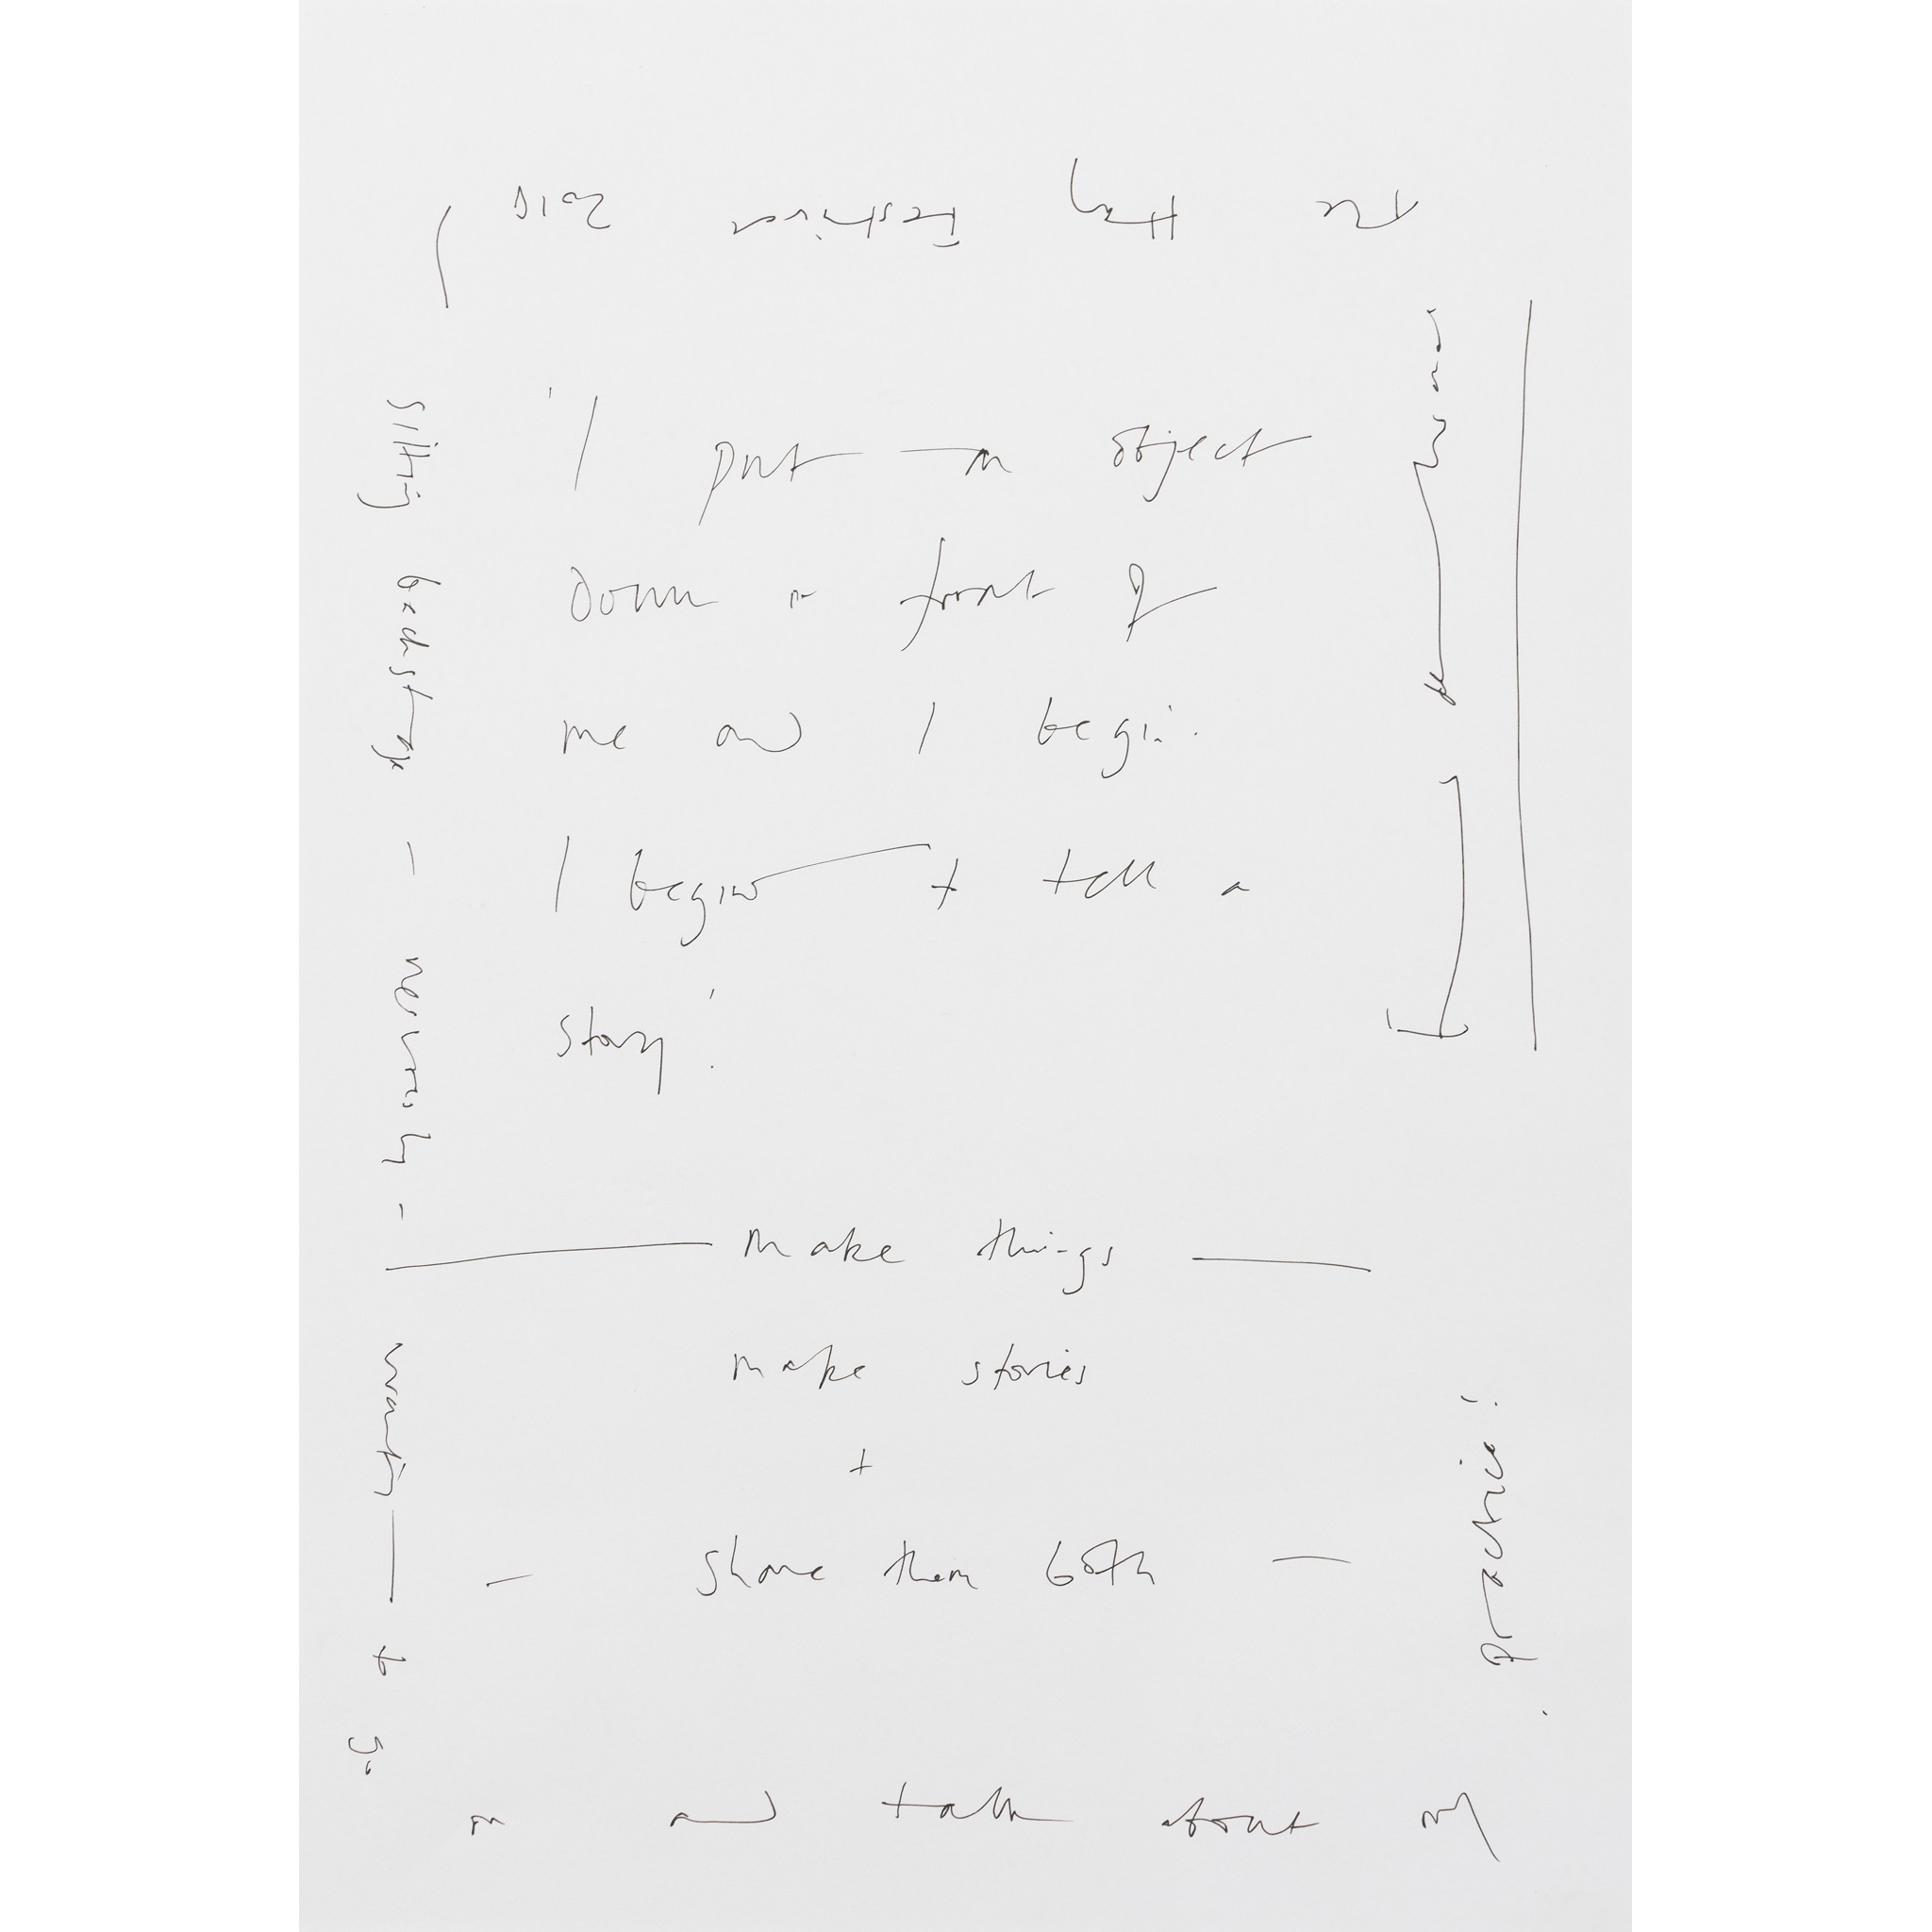 'I put an object
down in front of
me and I begin.
I begin to tell a
story'.
make things
make stories
+
- share them both -
Hay Festival
sitting backstage - nervously -
waiting — to go
on and talk about my
practice!